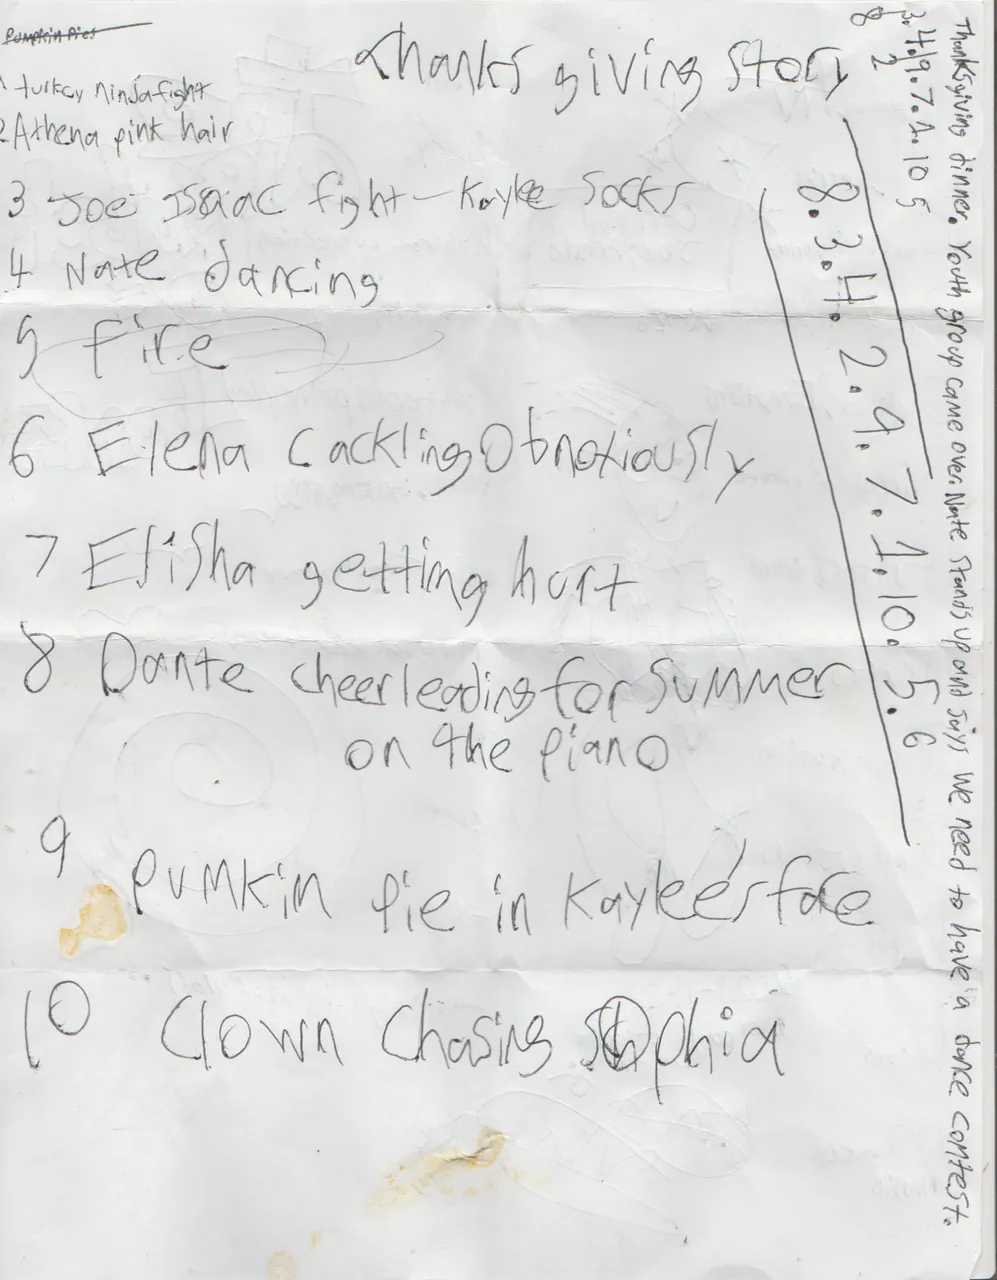 Pumpkin Pies
thanks giving story
1 turkey ninja fight
2 Athena pink hair
3 Joe Isaac fight - Kaylee Socks
4 Nate dancing
5 fire
6 Elena Cackling Obnotiously
7 Elisha getting hurt
8 Dante cheerleading for Summer
on the piano
9 pumkin pie in Kaylee's face
10 Clown Chasing Sophia
8.3.4.2.9.7.1.10.5.6
3.4.9.7.1.10 5
8 2
Thanksgiving dinner. Youth group came over. Nate stands up and says we need to have a dance contest.